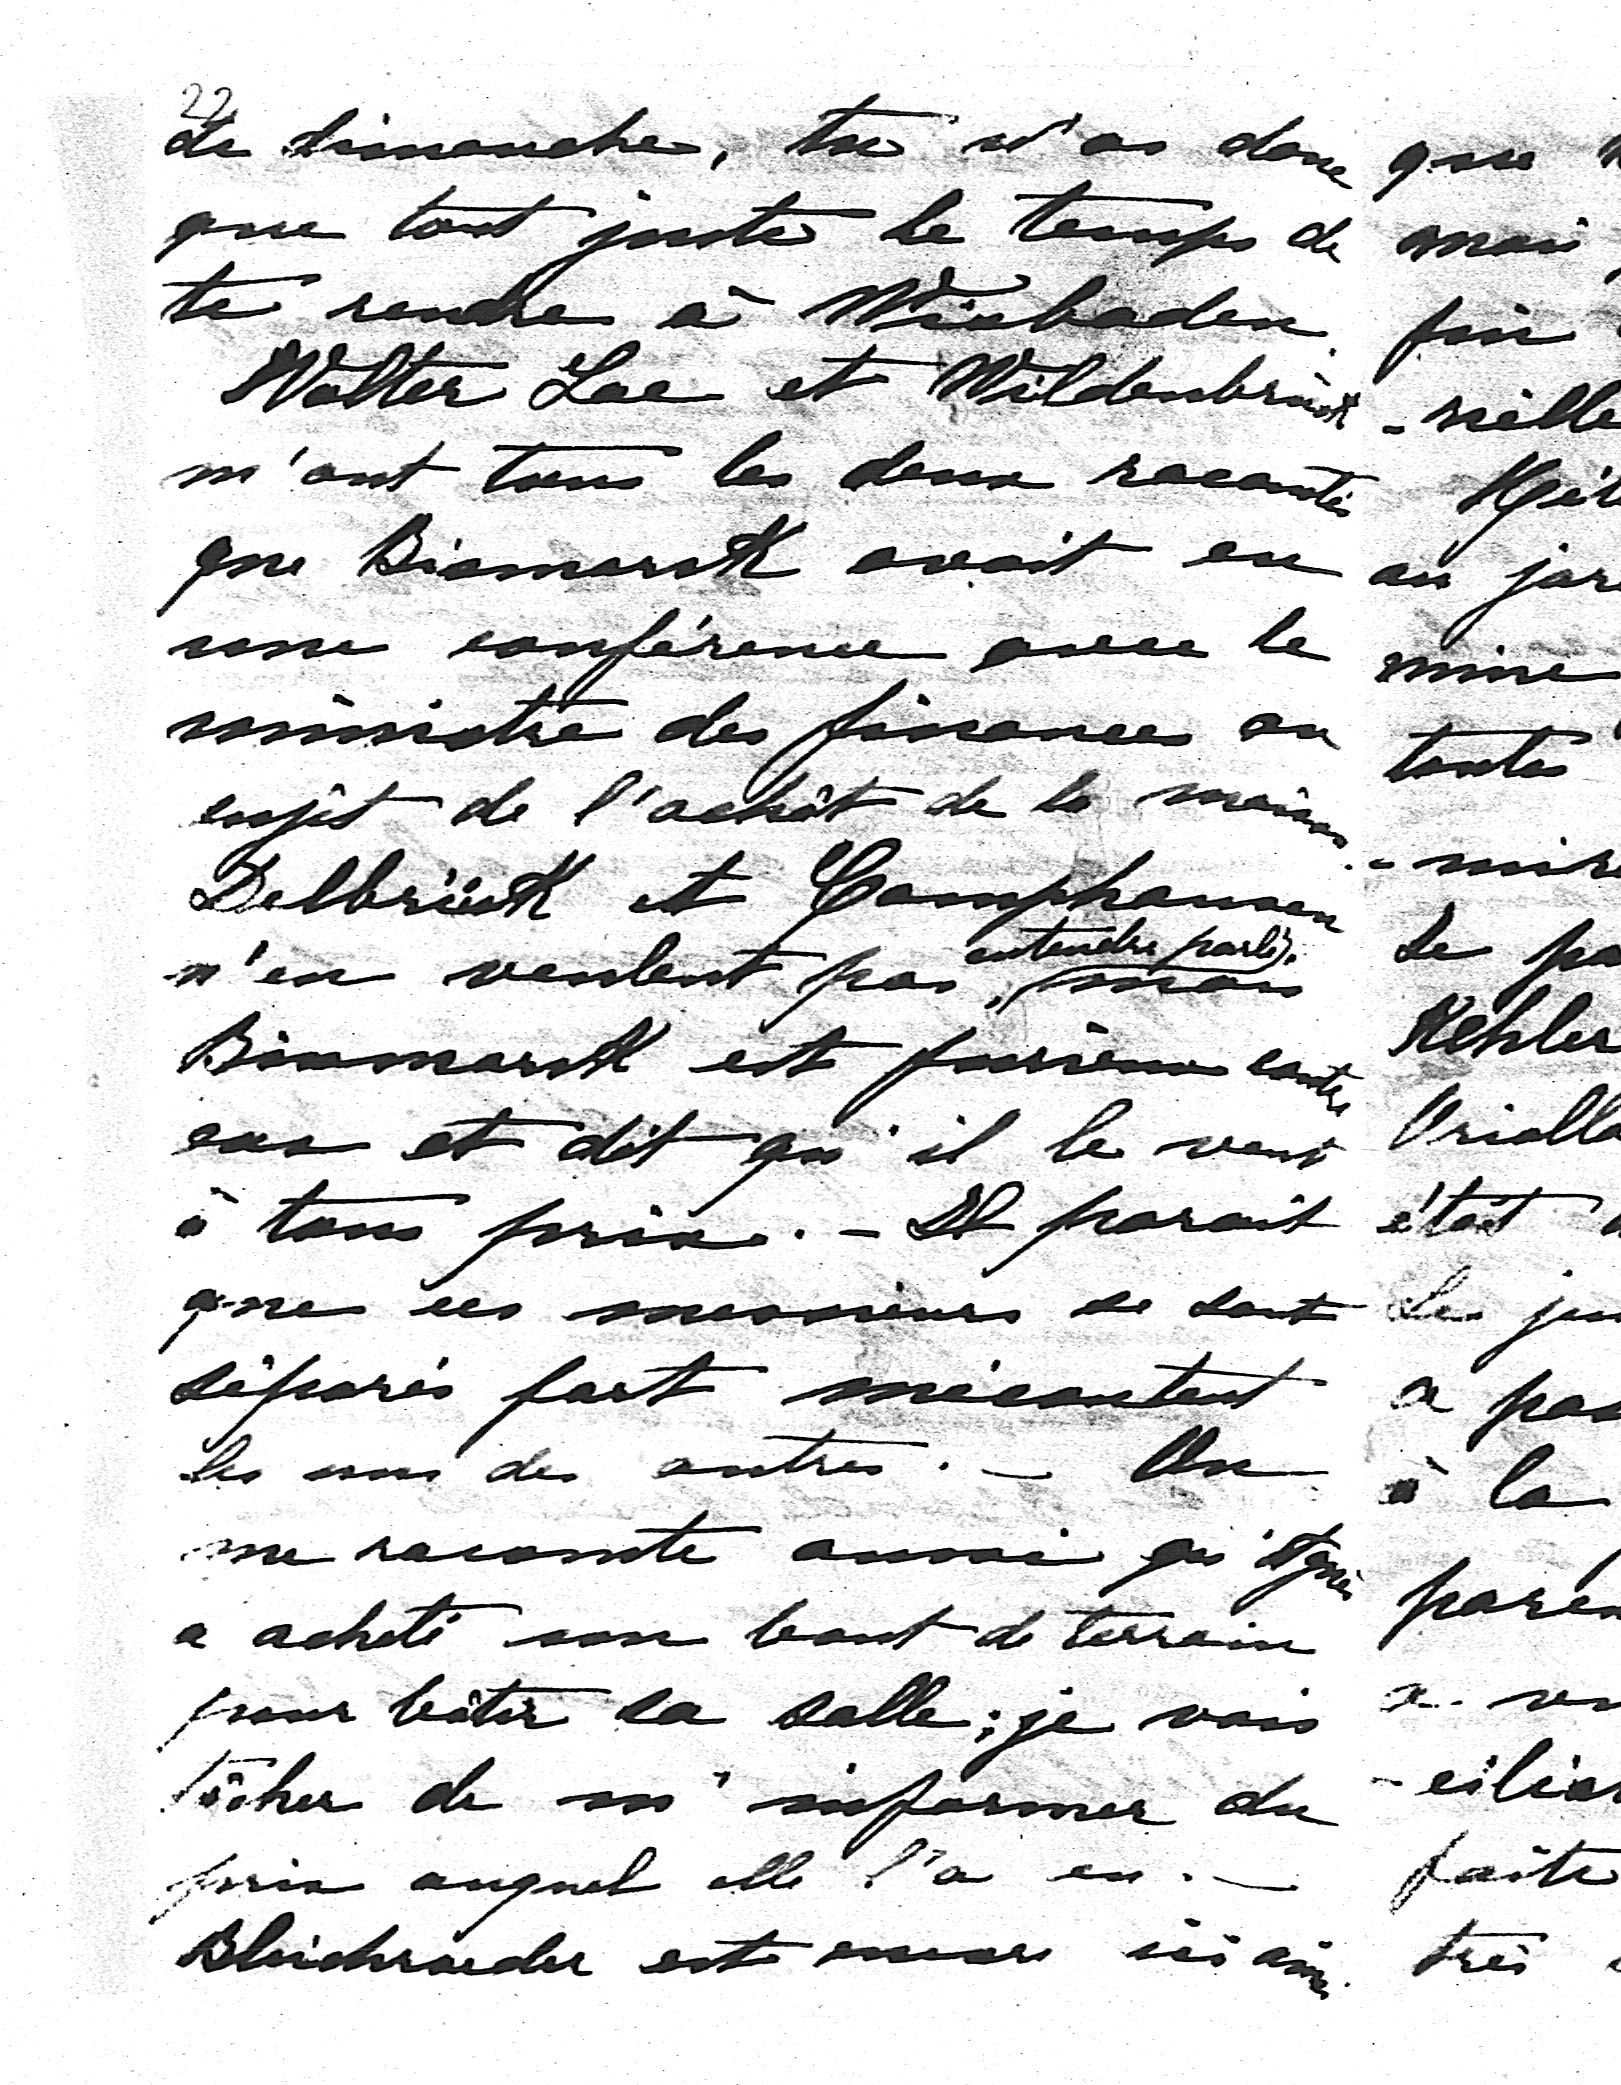 22
Le dimanche, tu n'as donc
que tout juste le temps de
te rendre à Wiesbaden.
Walter Loe et Wildenbruch
m'ont tous les deux racontés
que Bismarck avait eu
une conférence avec le
ministre des finances au
sujet de l'achât de la maison.
Delbrück et Camphausen
entendre parler.
n'en veulent pas, mais
Bismarck est furieux contre
eux et dit qu'il le veut
à tous prix. - Il parait
que ces messieurs se sont
séparés fort mécontent
les uns des autres. - On
me raconte aussi qu'Agnès
a acheté son bout de terrain
pour bâtir sa salle; je vais
tâcher de m'informer du
prix auquel elle l'a eu. -
Bleichroeder est encore ici
que
mais
fin
-nelle
au
mine
toutes
Le
Kehler
Oriolla
était
Les
a
à la
a
faite
très